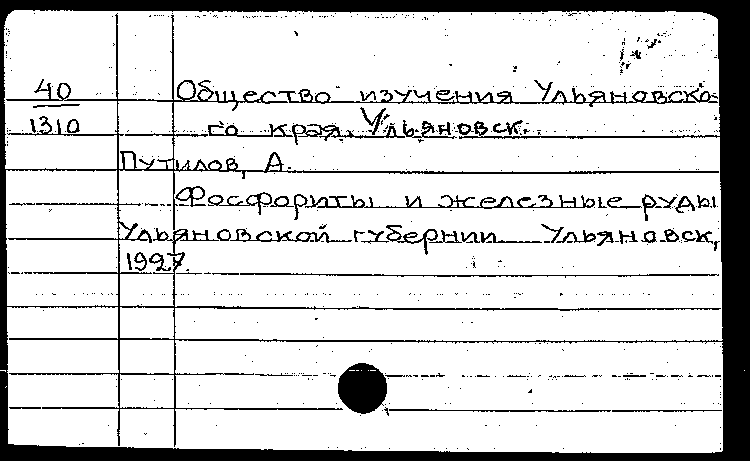 40
1310
Общество изучения Ульяновско-
го края. Ульяновск.
Путилов, А.
Фосфориты и железные руды
Ульяновской губернии Ульяновск,
1927.